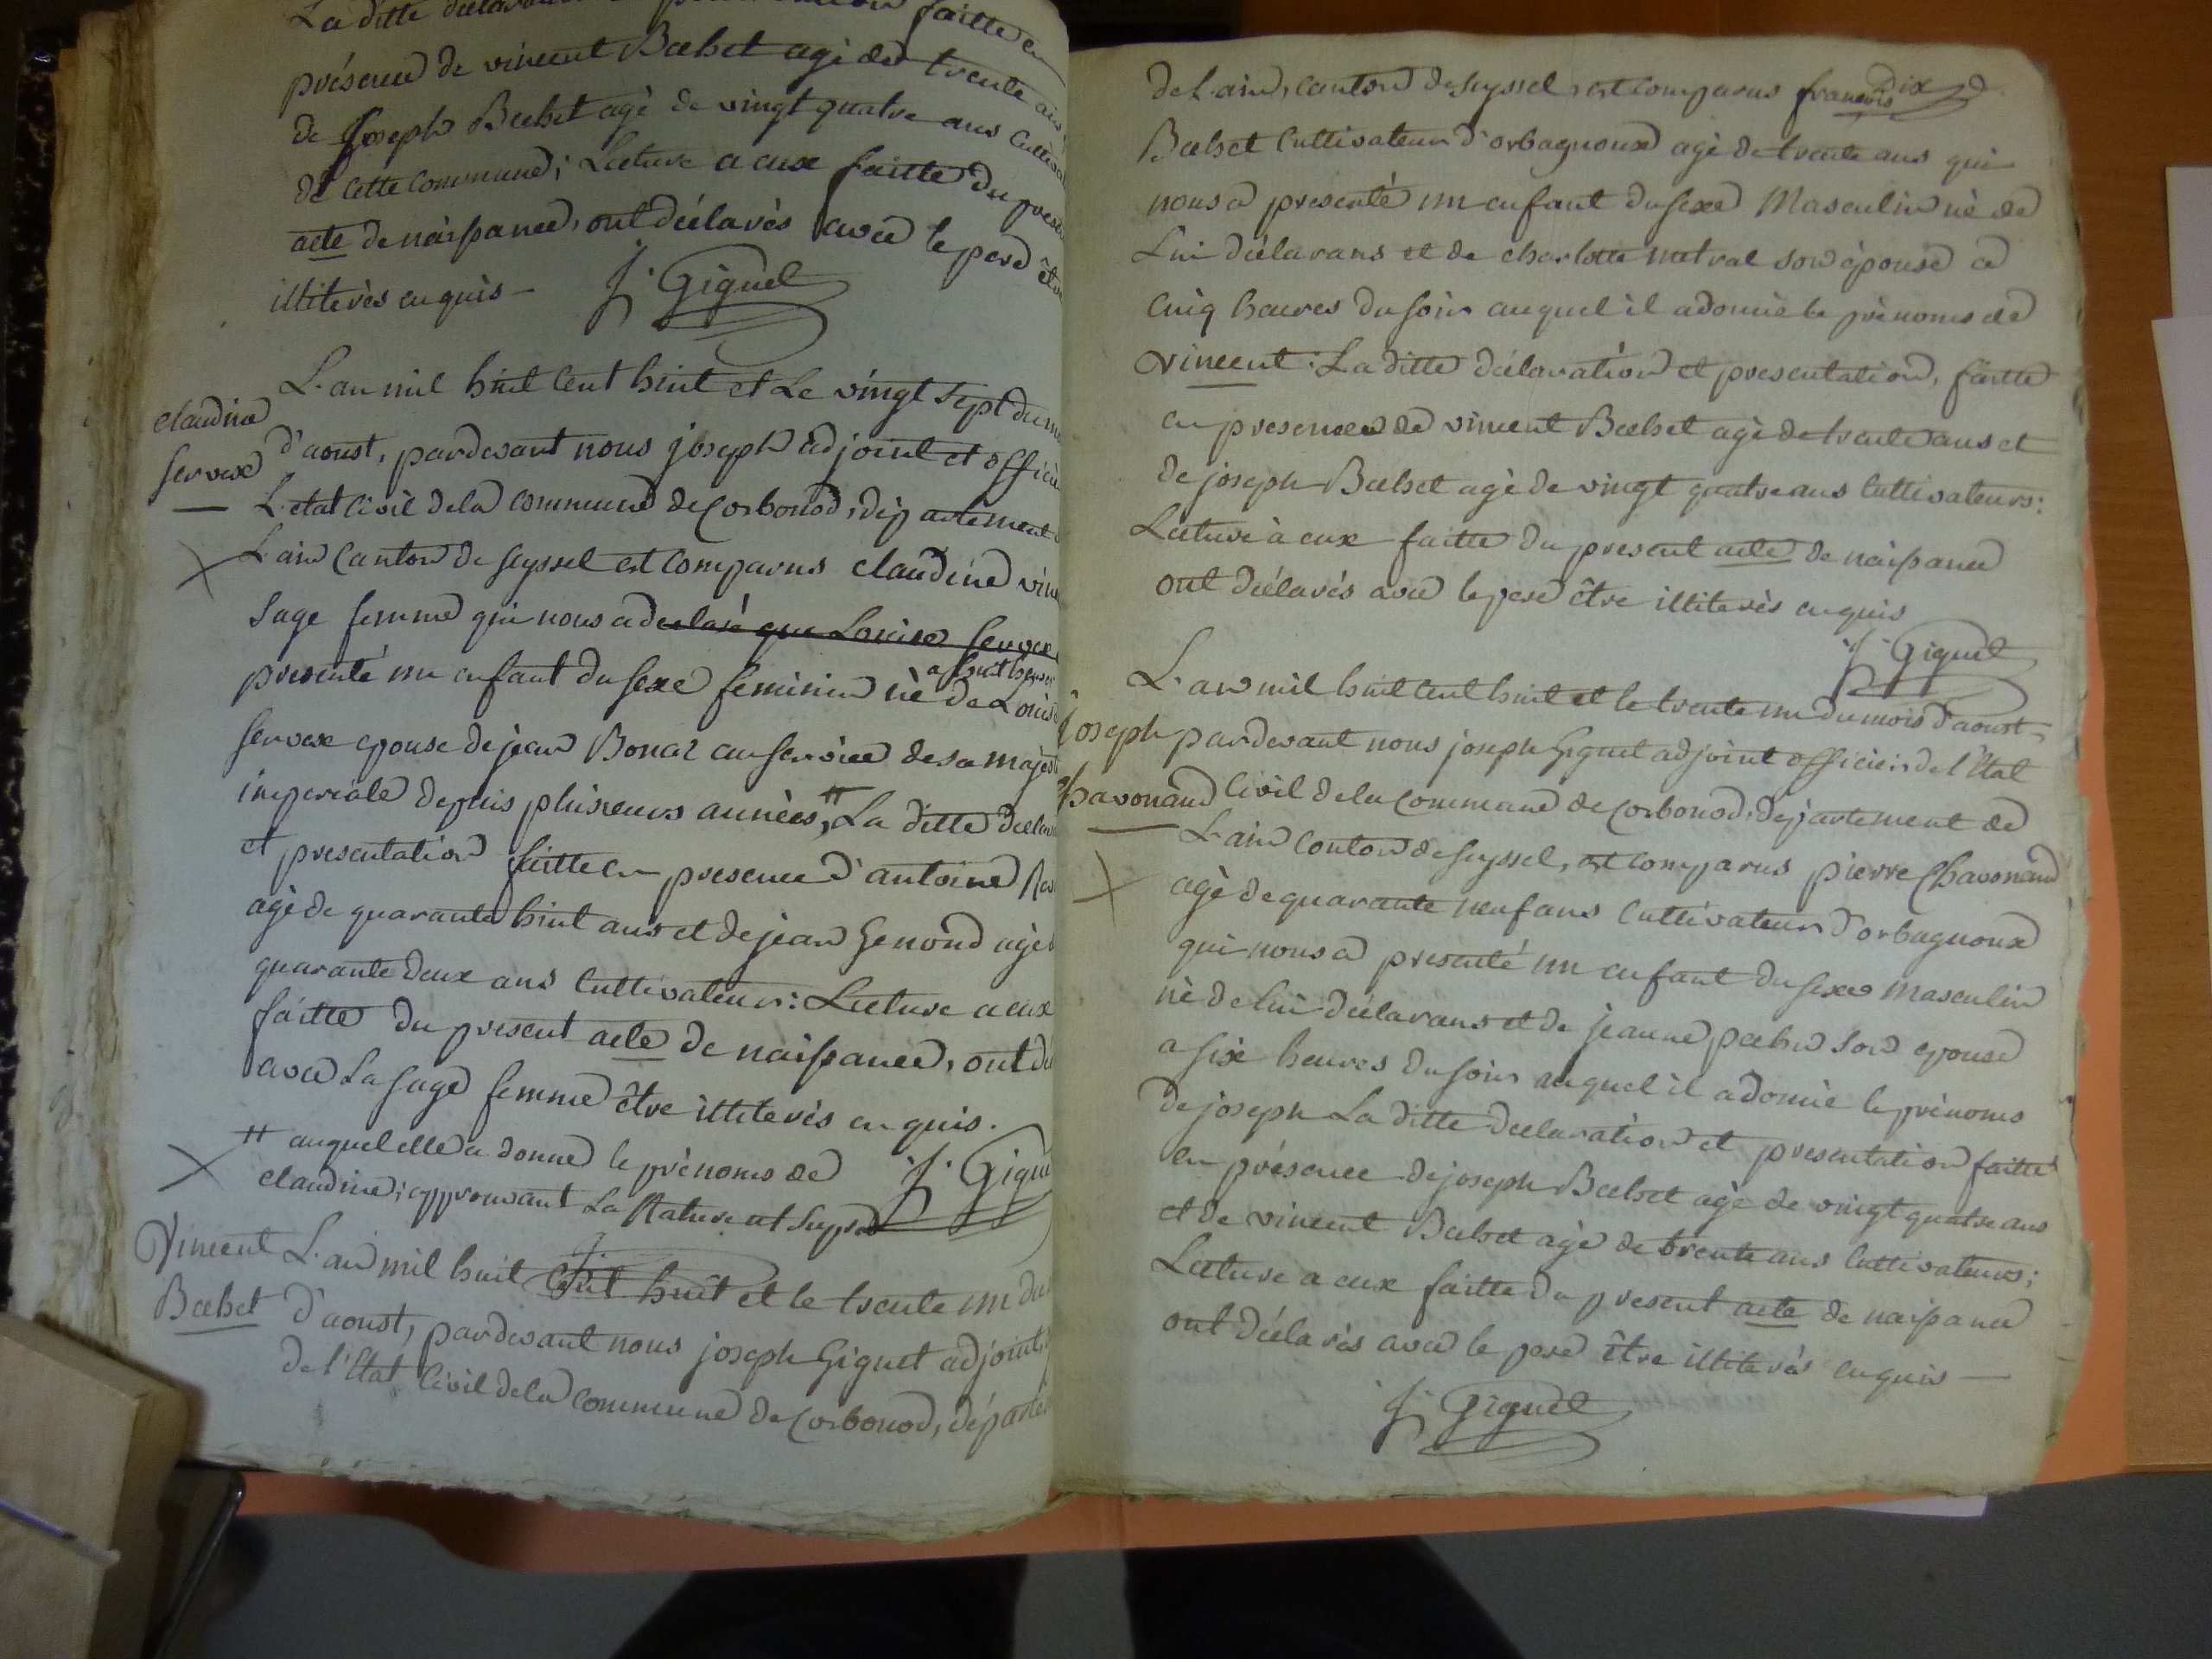 La ditte
faitte en
présence de vincent Bæbet agé de trente ans
de Joseph Bæbet agé de vingt quatre ans
de cette commune; Lecture a eux faitte du
acte de naissance, ont déclarés avec le pere
illiterés enquis — J. Giguet
L'an mil huit cent huit et Le vingt sept du
claudine
d'aoust, pardevant nous joseph adjoint et
servex
L'etat civil de la commune de Corbonod, département
L'ain Canton de seyssel est comparus claudine
sage femme qui nous a declaré que Louise servex
a huit heures
presenté un enfant du sexe feminin né de Louise
servex epouse de jean Bonaz au service de sa
imperiale depuis plusieurs années, # La ditte
et presentation faitte en presence d'antoine
agé de quarante huit ans et de jean Genond agé
quarante deux ans Cultivateur: Lecture a eux
faitte du present acte de naissance, ont
avec La sage femme être illiterés enquis.
# auquel elle a donné le prénoms de J. Giguet
claudine; approuvant La Rature et
Vincent
L'an mil huit Cent huit et le trente un du
Bæbet
d'aoust, pardevant nous joseph Giguet adjoint
de l'Etat Civil de la Commune de Corbonod,
dix
de L'ain, canton de seyssel, est comparus françois
Bæbet Cultivateur d'orbagnoux agé de trente ans qui
nous a presenté un enfant du sexe Masculin né de
Lui déclarans et de charlotte metral son épouse a
Cinq heures du soir auquel il a donné le prénoms de
vincent: La ditte déclaration et presentation, faitte
en presence de vincent Bæbet agé de trente ans et
de joseph Bæbet agé de vingt quatre ans Cultivateurs:
Lecture à eux faitte du present acte de naissance
ont déclarés avec le pere être illiterés enquis
J. Giguet
L'an mil huit cent huit et le trente un du mois d'aoust,
joseph
pardevant nous joseph Giguet adjoint officier de l'Etat
chavonand
Civil de la Commune de Corbonod, département de
L'ain Canton de seyssel, est comparus pierre Chavonand
agé de quarante neuf ans Cultivateur d'orbagnoux
qui nous a presenté un enfant du sexe masculin
né de lui déclarans et de jeanne son epouse
a six heures du soir auquel il a donné le prénoms
de joseph La ditte declaration et presentation faitte
en présence de joseph Bæbet agé de vingt quatre ans
et de vincent Bæbet agé de trente ans Cultivateurs;
Lecture a eux faitte du present acte de naissance
ont déclarés avec le pere être illiterés enquis —
J. Giguet